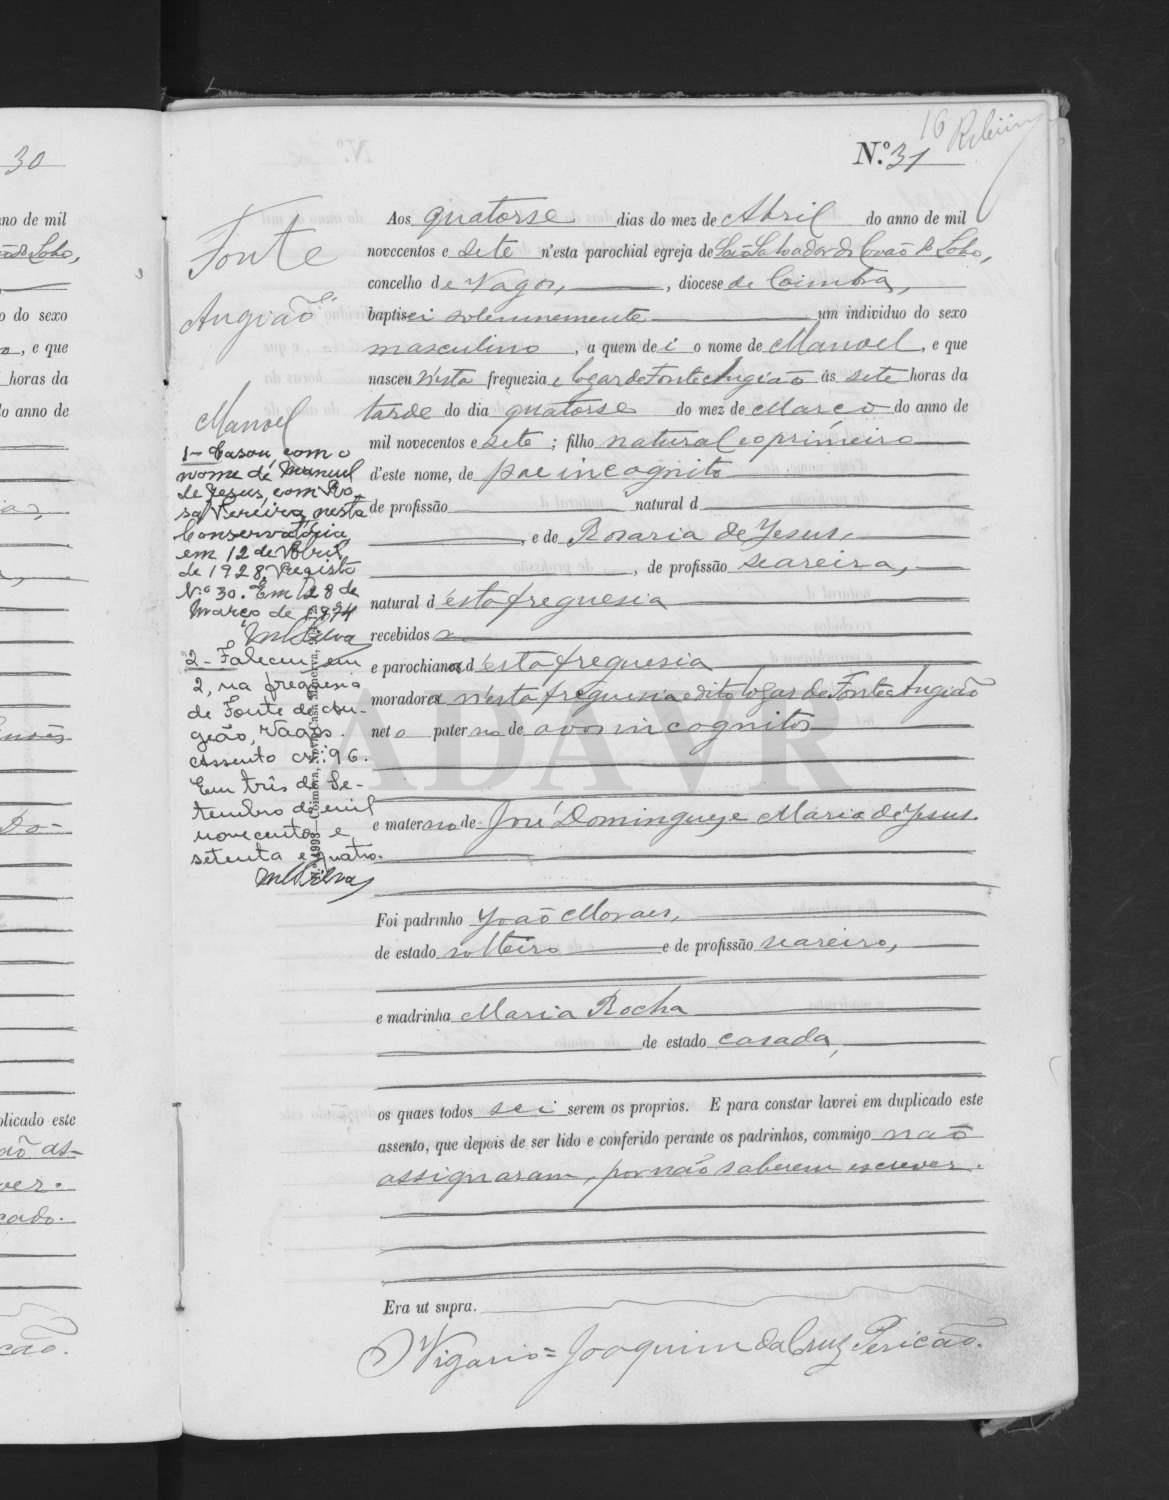 30
no de mil
do sexo
, e que
horas da
o anno de
plicado este
ão as-
ver.
cado.
16
N.º 31
Fonte
Angião
Manoel
1- Casou, com o
nome de, Manuel
de Jesus, com Ro-
sa Pereira, nesta
Conservatória,
em 12 de Abril
de 1928. Registo
N.º 30. Em 28 de
Março de 1974
MSilva
2- Faleceu em
2, na freguesia
de Fonte de An-
geão, Vagos.
Assento nº 96.
Em três de Se-
tembro de mil
novecentos e
setenta e quatro.
MSilva
Aos quatorse dias do mez de Abril do anno de mil
novecentos e sete n'esta parochial egreja de São Salvador de Covão do Lobo,
concelho de Vagos, , diocese de Coimbra,
baptisei solemnemente um individuo do sexo
masculino , a quem dei o nome de Manoel, e que
nasceu n'esta freguezia e logar de Fonte Angião ás sete horas da
tarde do dia quatorse do mez de Março do anno de
mil novecentos e sete ; filho natural e o primeiro
d'este nome, de pae incognito
de profissão natural d
, e de Rosaria de Jesus,
, de profissão seareira,
natural d'esta freguesia
recebidos
e parochianos d'esta freguesia
moradores n'esta freguesia e dito logar de Fonte Angião
neto paterno de avos incognitos
e materno de José Domingues e Maria de Jesus.
Foi padrinho João Moraes,
de estado solteiro e de profissão seareiro,
e madrinha Maria Rocha
de estado casada,
os quaes todos sei serem os proprios. E para constar lavrei em duplicado este
assento, que depois de ser lido e conferido perante os padrinhos, commigo não
assignaram, por não saberem escrever.
Era ut supra.
O Vigario = Joaquim da Cruz Pericão.
ADAVR